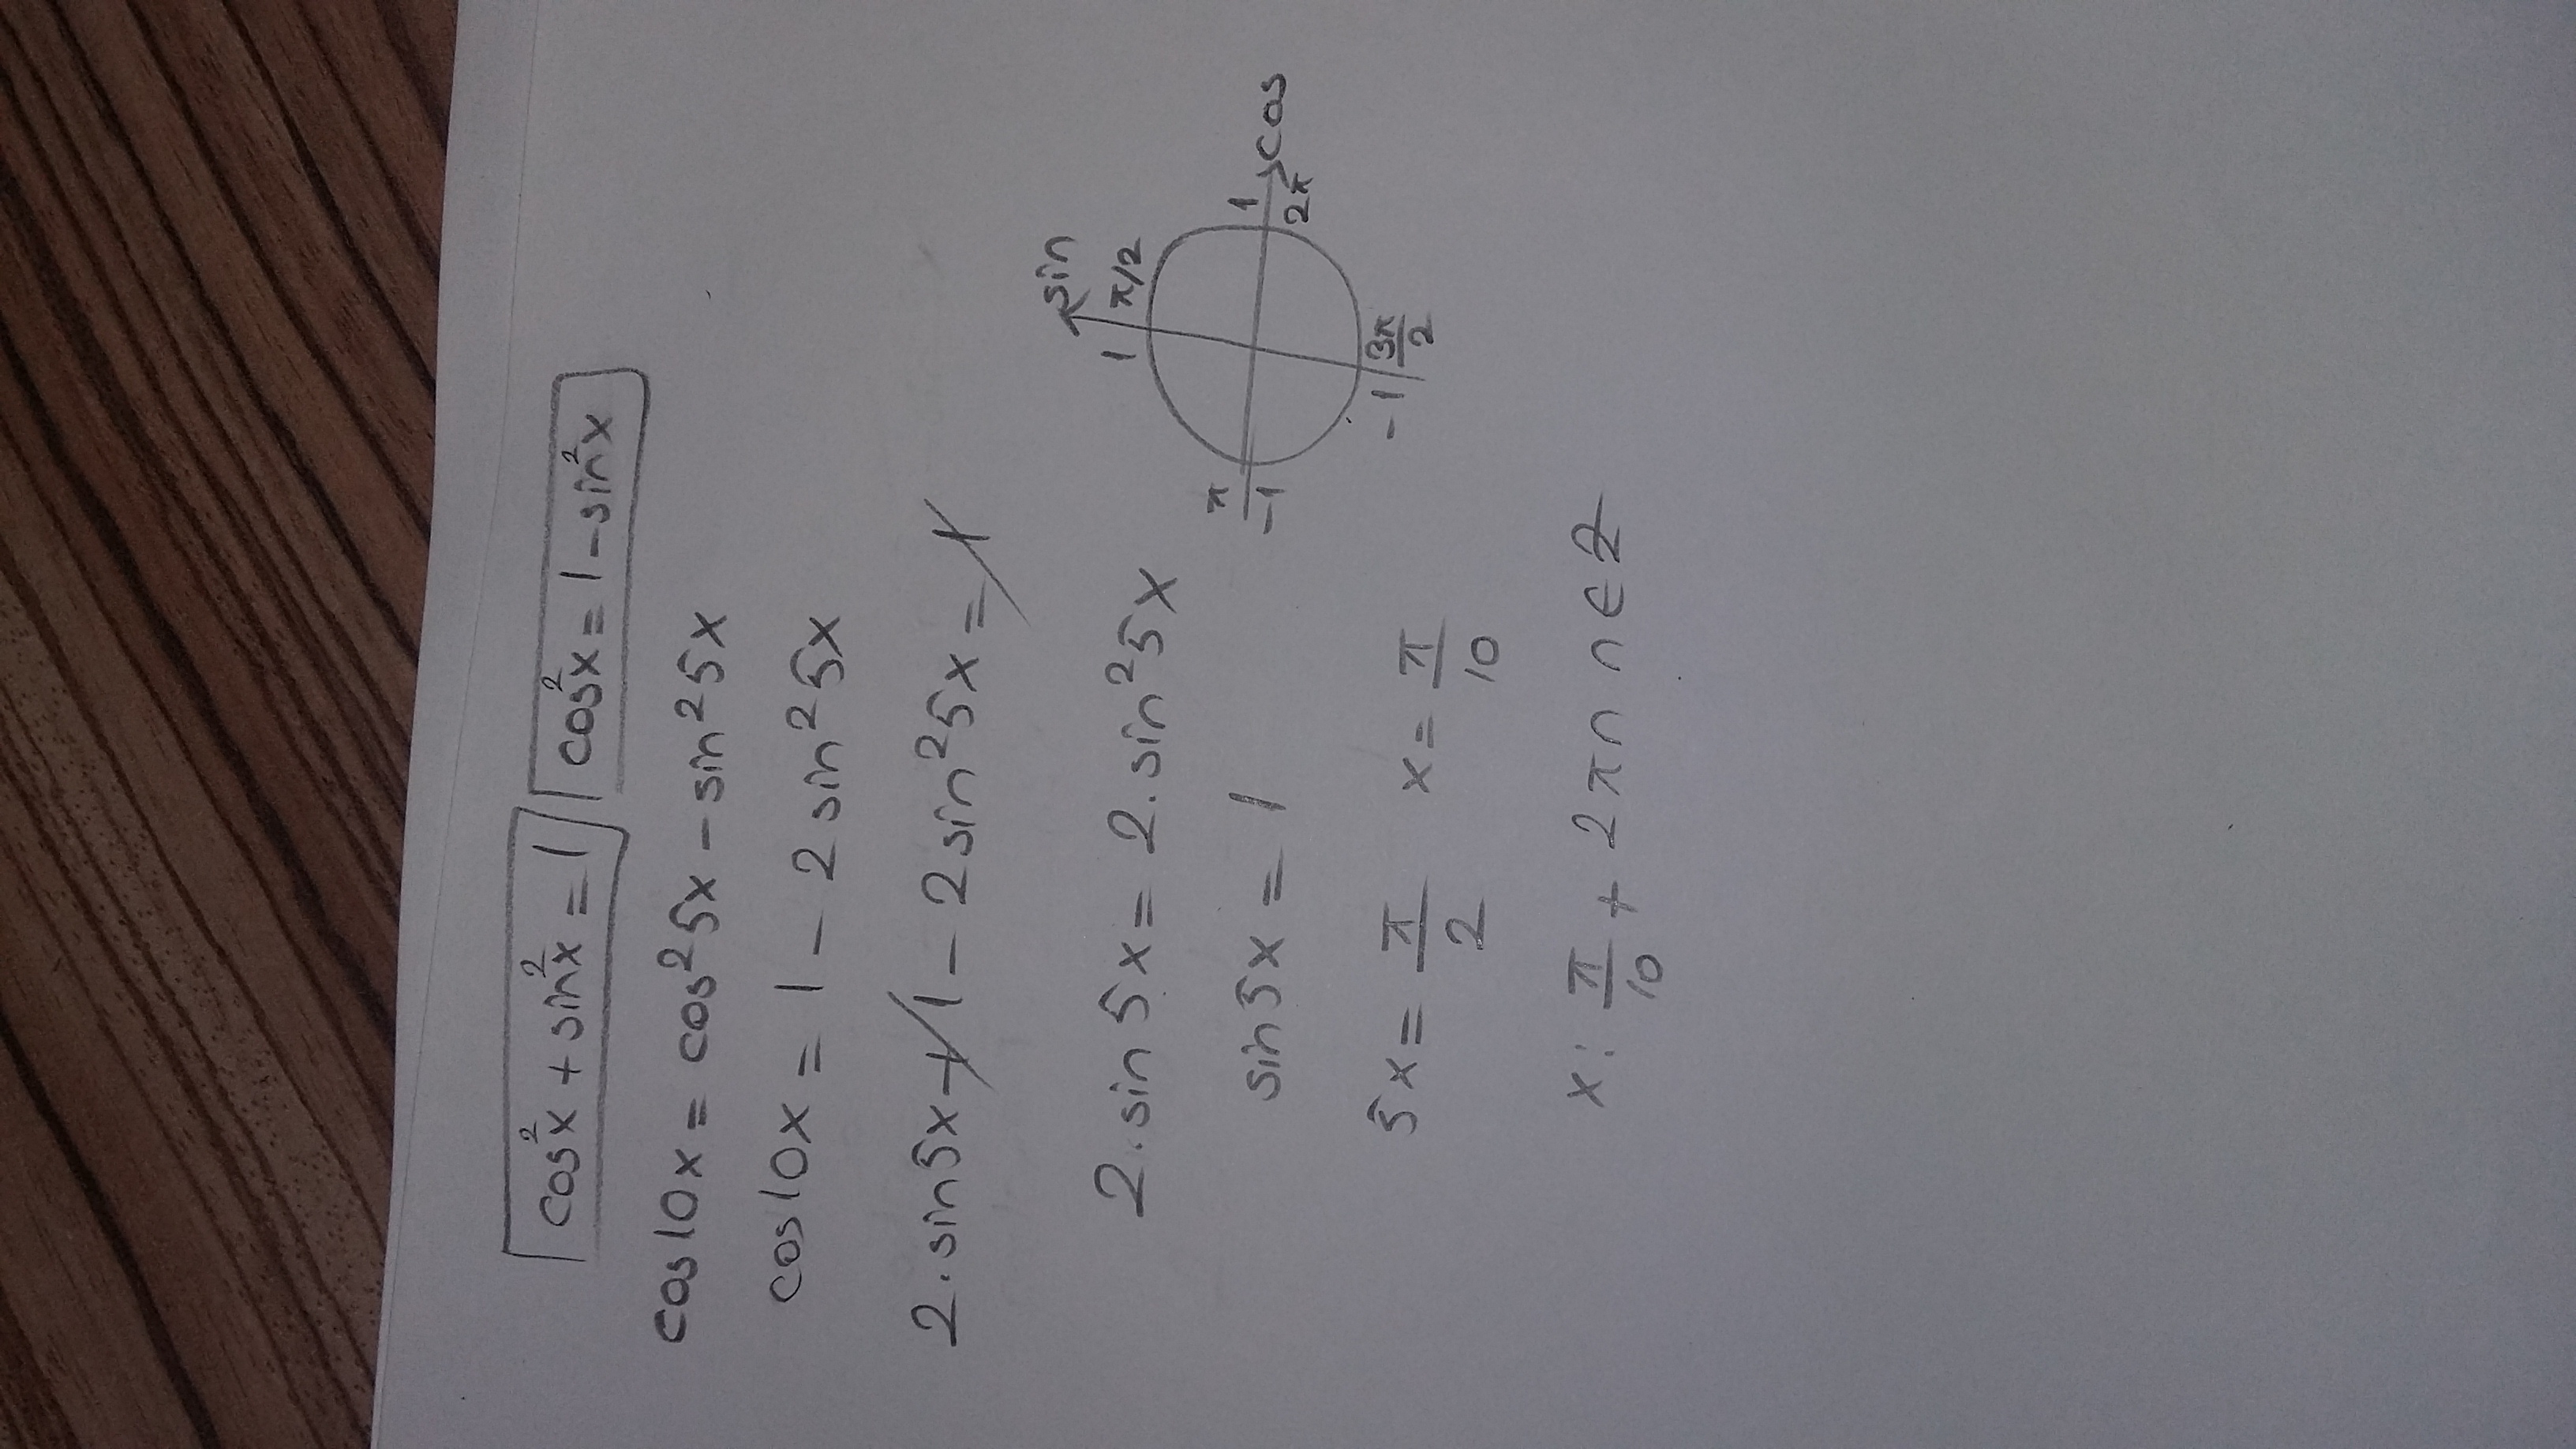 cos²x + sin²x = 1 cos²x = 1 - sin²x
cos10x = cos²5x - sin²5x
cos10x = 1 - 2sin²5x
2.sin5x + 1 - 2sin²5x = 1
2.sin5x = 2.sin²5x
sin5x = 1
5x = π/2 x = π/10
x: π/10 + 2πn n ∈ Z
sin
1 π/2
π 1 cos
-1 2π
-1 3π/2